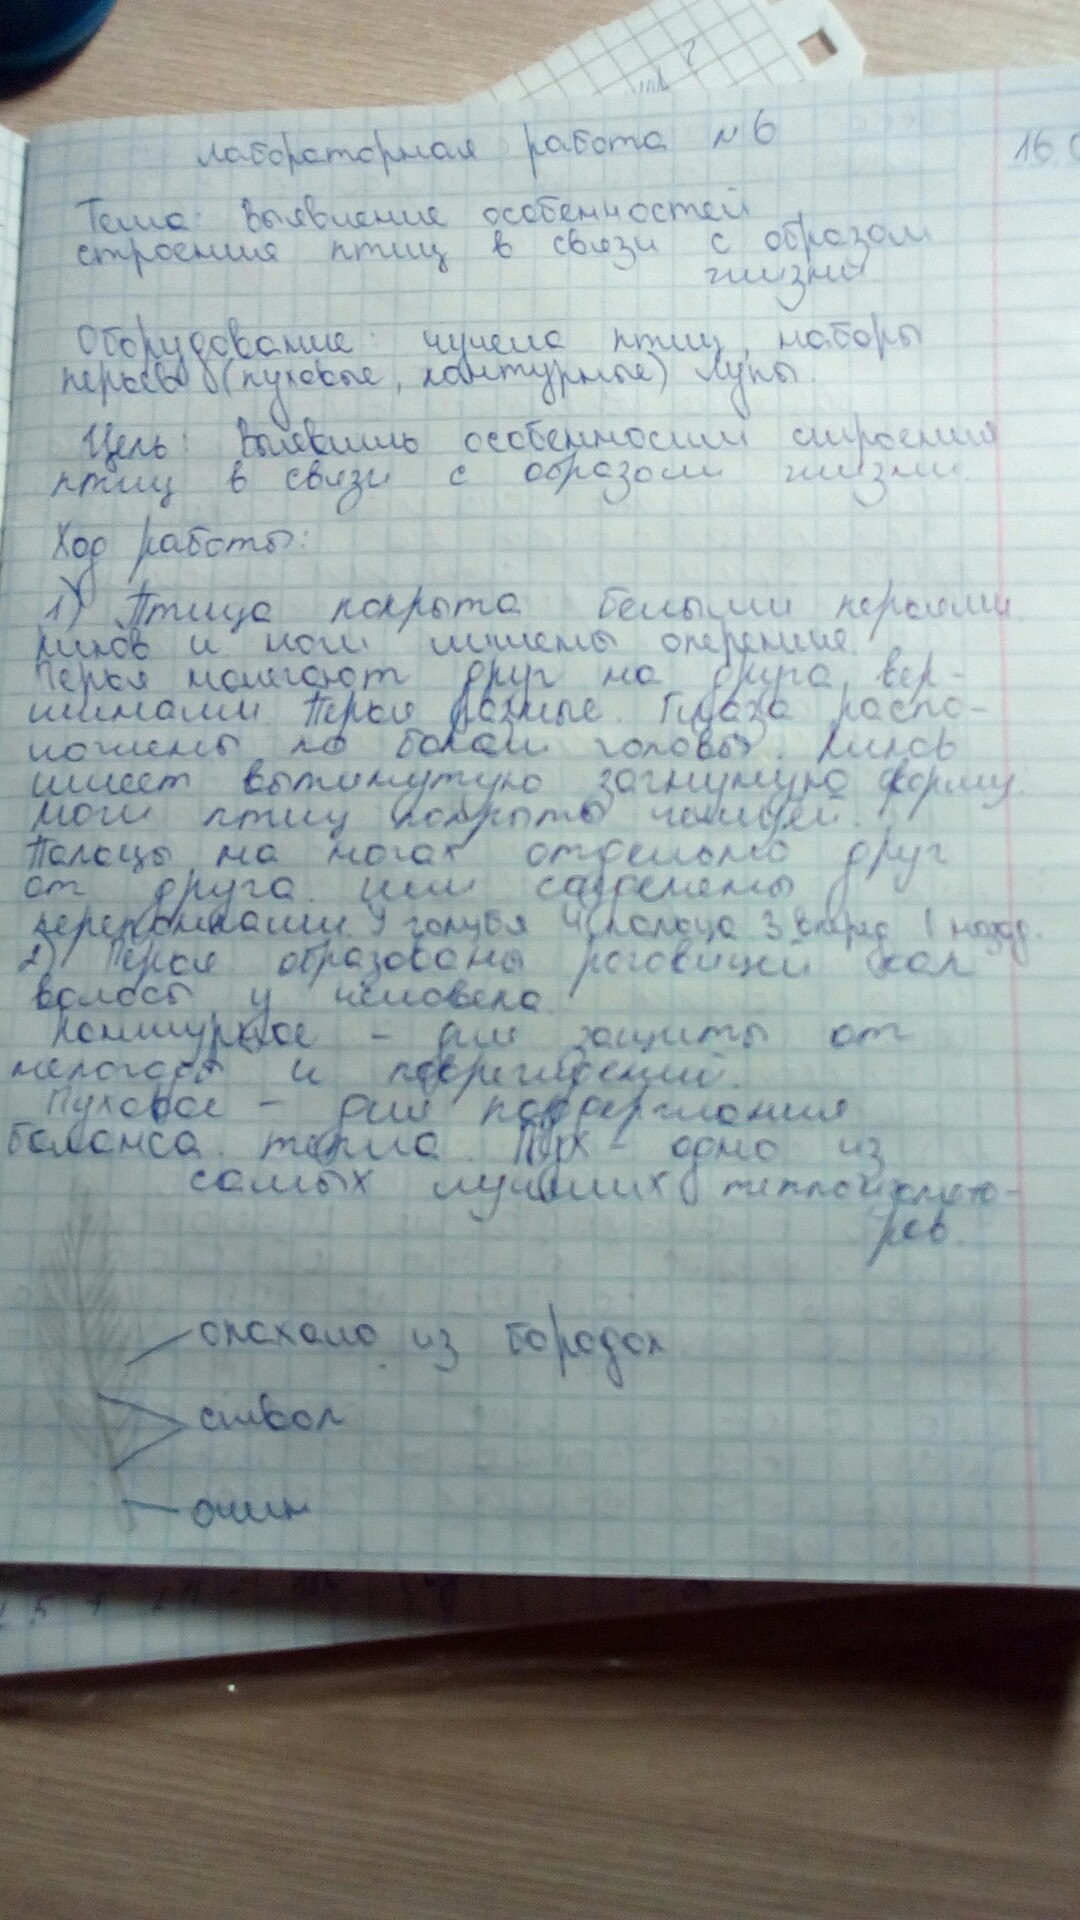 Лабораторная работа №6
16
Тема: Выявление особенностей
строения птиц в связи с образом
жизни.
Оборудование: чучела птиц, наборы
перьев (пуховые, контурные) Лупы.
Цель: Выявить особенности строения
птиц в связи с образом жизни.
Ход работы:
1) Птица покрыта белыми перьями.
Клюв и ноги лишены оперения.
Перья налегают друг на друга вер-
шинами. Перья разные. Глаза распо-
ложены по бокам головы. Клюв
имеет вытянутую загнутую форму.
Ноги птиц покрыты чешуёй.
Пальцы на ногах отдельно друг
от друга или соеденены
перепонками. У голубя 4 пальца 3 вперед 1 назад.
2) Перья образованы роговицей как
волосы у человека.
Контурное - для защиты от
непогоды и повреждений.
Пуховое - для поддержания
баланса тепла. Пух - одно из
самых лучших теплоизолято-
ров.
опахало из бородок
ствол
очин